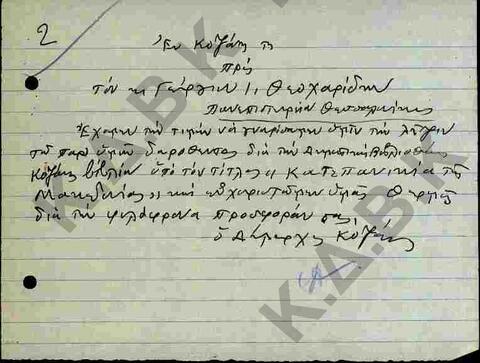 2
Ἐν Κοζάνῃ τῇ
Πρὸς
τὸν κ. Γεώργιον Ι. Θεοχαρίδην
Πανεπιστήμιον Θεσσαλονίκης
Ἔχομεν τὴν τιμὴν νὰ γνωρίσωμεν ὑμῖν τὴν λῆψιν
τοῦ παρ' ὑμῶν δωρηθέντος διὰ τὴν Δημοτικὴν Βιβλιοθήκην
Κοζάνης βιβλίου ὑπὸ τὸν τίτλον "Κατεπανίκια τῆς
Μακεδονίας" καὶ εὐχαριστοῦμεν ὑμᾶς θερμῶς
διὰ τὴν φιλόφρονα προσφοράν σας.
ὁ Δήμαρχος Κοζάνης
Κ.Δ.Β.Κ